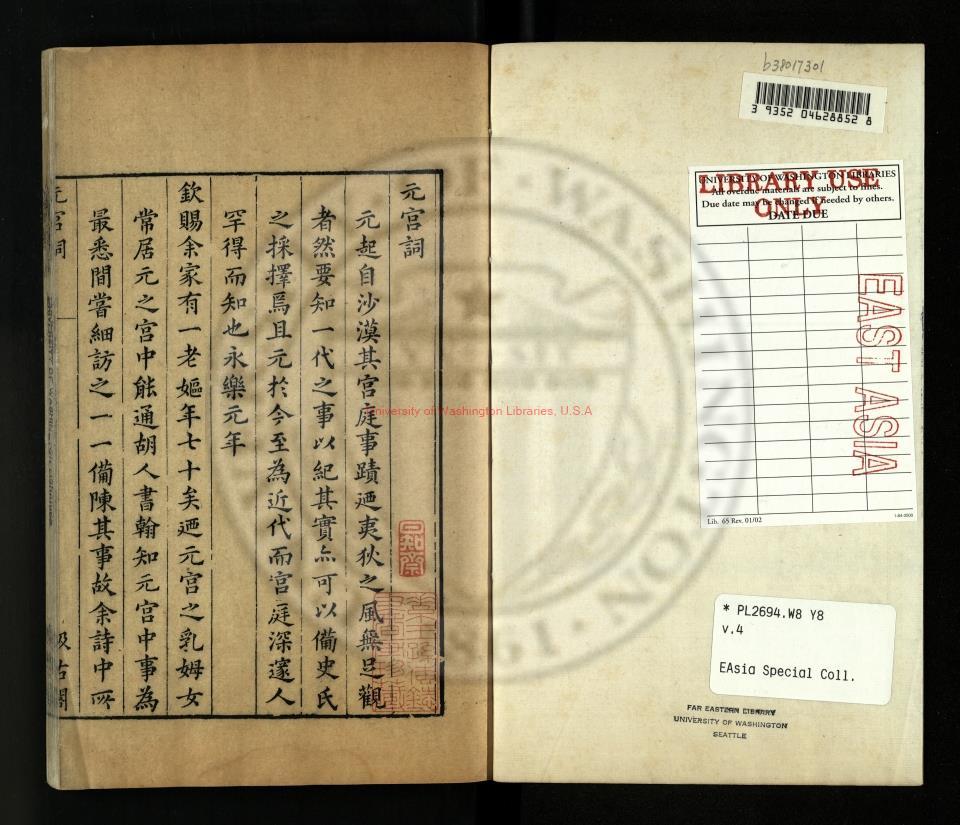 元宮詞
元起自沙漠其宮庭事蹟迺夷狄之風無足觀
者然要知一代之事以紀其實亦可以備史氏
之採擇焉且元於今至為近代而宮庭深邃人
罕得而知也永樂元年
欽賜余家有一老嫗年七十矣迺元宮之乳姆女
常居元之宮中能通胡人書翰知元宮中事為
最悉間嘗細訪之一一備陳其事故余詩中所
元宮詞
汲古閣
University of Washington Libraries, U.S.A
b38017301
3 9352 04628852 8
UNIVERSITY OF WASHINGTON LIBRARIES
LIBRARY USE ONLY
All overdue materials are subject to fines.
Due date may be changed if needed by others.
DATE DUE
EAST ASIA
Lib. 65 Rev. 01/02
* PL2694.W8 Y8
v.4
EAsia Special Coll.
FAR EASTERN LIBRARY
UNIVERSITY OF WASHINGTON
SEATTLE